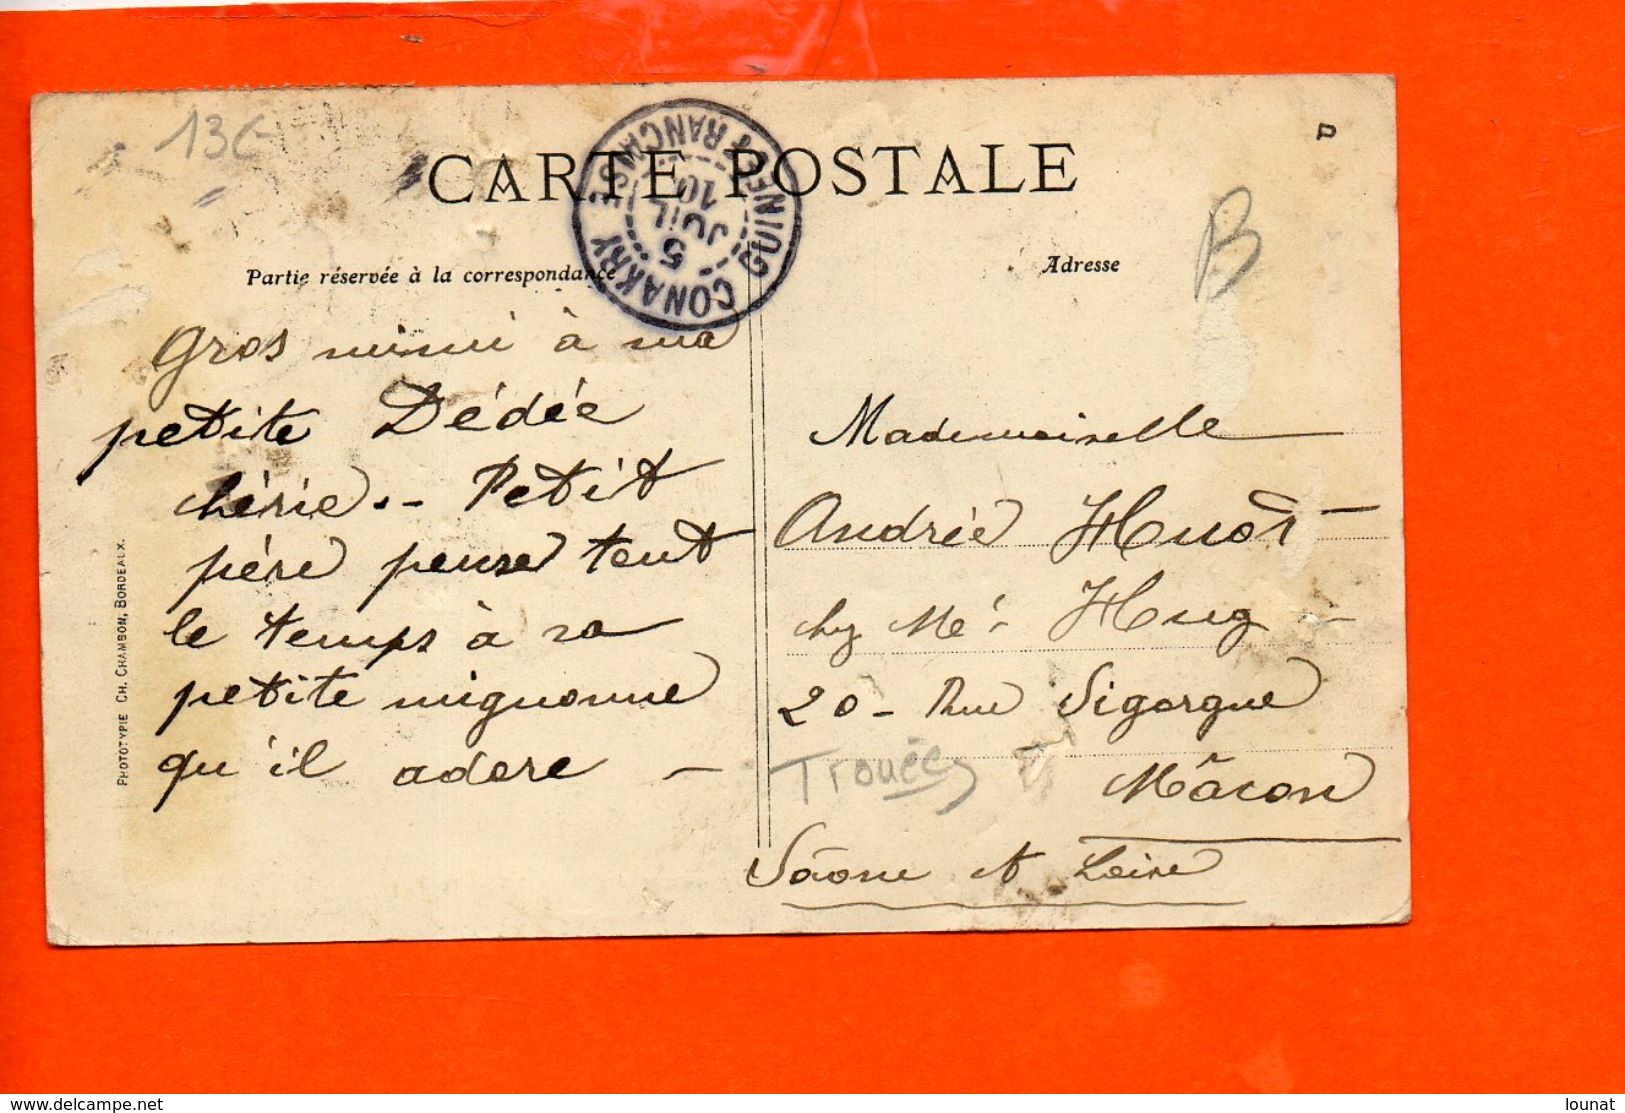 13€
CARTE POSTALE
CONAKRY GUINÉE FRANÇAISE
5
JUIL
10
B
Partie réservée à la correspondance
Adresse
Gros mimi à ma
petite Dédée
chérie.. - Petit
père pense tout
le temps à sa
petite mignonne
qu'il adore -
Mademoiselle
Andrée Huot -
chez Me - Hug -
20 - Rue Sigorgne
Trouée
Mâcon
Saône et Loire
PHOTOTYPIE CH. CHAMBON, BORDEAUX.
https://www.delcampe.net
lounat